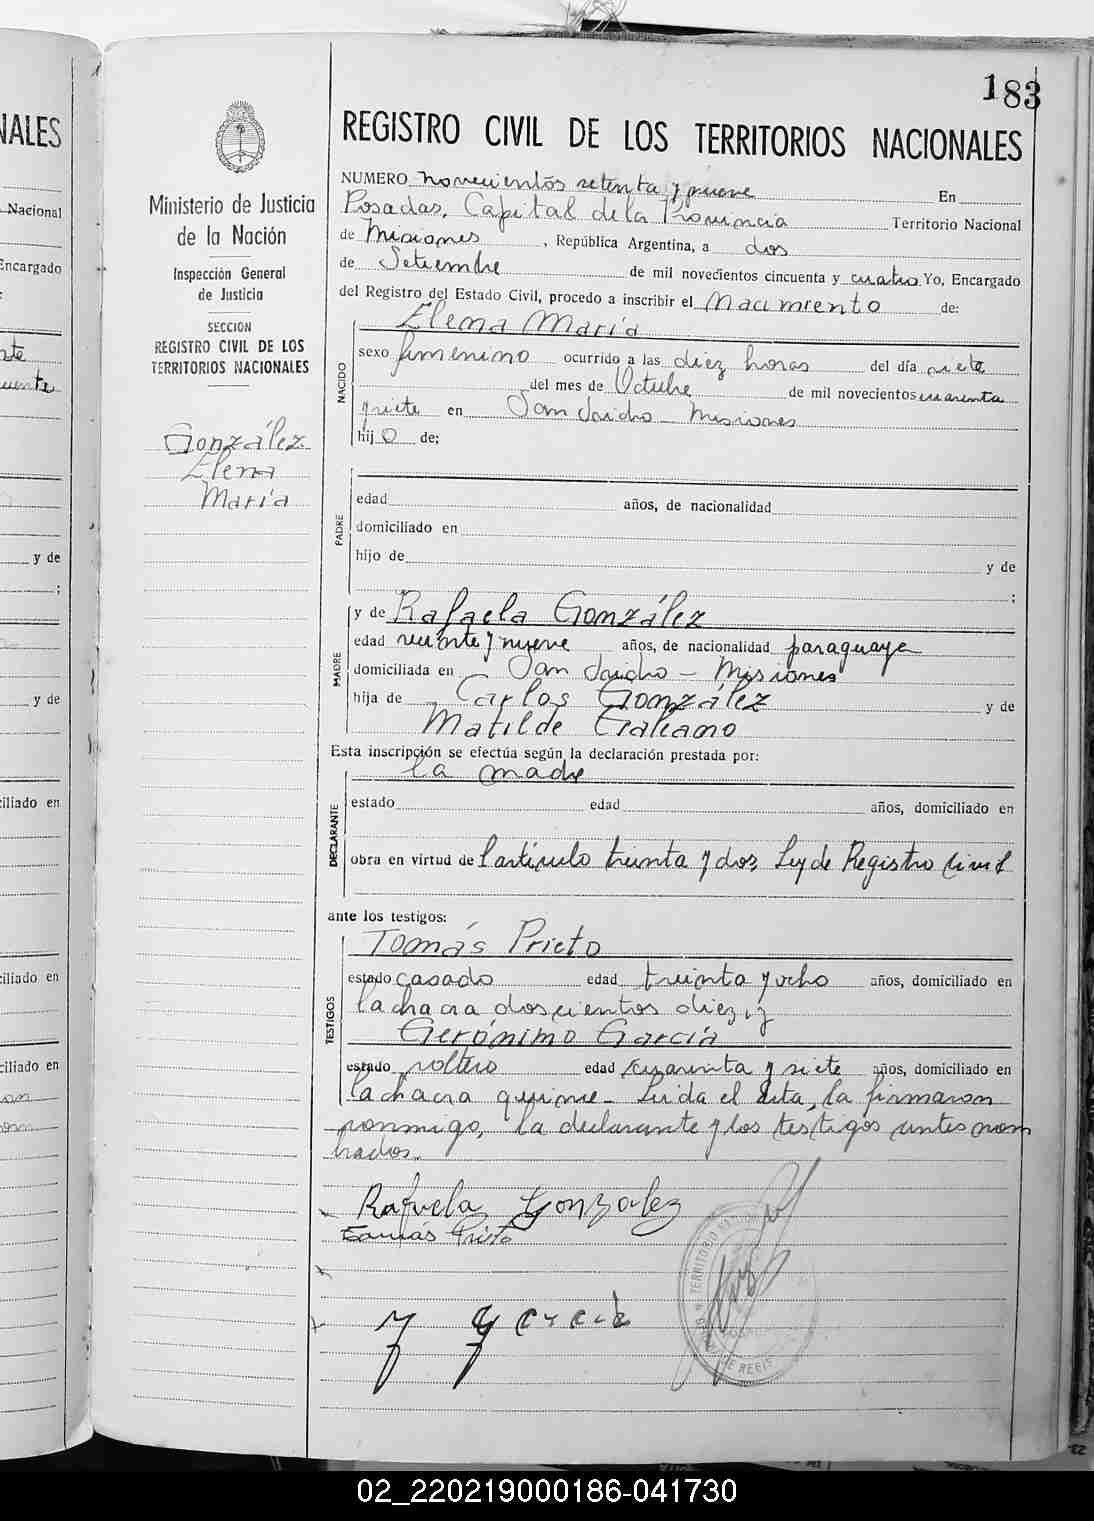 183
REGISTRO CIVIL DE LOS TERRITORIOS NACIONALES
Ministerio de Justicia
de la Nación
Inspección General
de Justicia
SECCION
REGISTRO CIVIL DE LOS
TERRITORIOS NACIONALES
González
Elena
María
NUMERO novecientos setenta y nueve En
Posadas, Capital de la Provincia Territorio Nacional
de Misiones, República Argentina, a dos
de Setiembre de mil novecientos cincuenta y cuatro Yo, Encargado
del Registro del Estado Civil, procedo a inscribir el Nacimiento de:
Elena María
NACIDO
sexo femenino ocurrido a las diez horas del día siete
del mes de Octubre de mil novecientos cuarenta
y siete en San Misiones
hijo de;
PADRE
edad años, de nacionalidad
domiciliado en
hijo de y de
;
MADRE
y de Rafaela González
edad veinte y nueve años, de nacionalidad paraguaya
domiciliada en San - Misiones
hija de Carlos González y de
Matilde Galeano
Esta inscripción se efectúa según la declaración prestada por:
la madre
DECLARANTE
estado edad años, domiciliado en
obra en virtud del artículo treinta y dos, Ley de Registro Civil
ante los testigos:
TESTIGOS
Tomás Prieto
estado casado edad treinta y ocho años, domiciliado en
la chacra doscientos diez, y
Gerónimo García
estado soltero edad cuarenta y siete años, domiciliado en
la chacra quince - Leida el acta, la firmaron
conmigo, la declarante y los testigos antes nom
brados.
Rafaela Gonzalez
Tomás Prieto
NALES
Nacional
Encargado
y de
;
y de
ciliado en
ciliado en
ciliado en
02_220219000186-041730